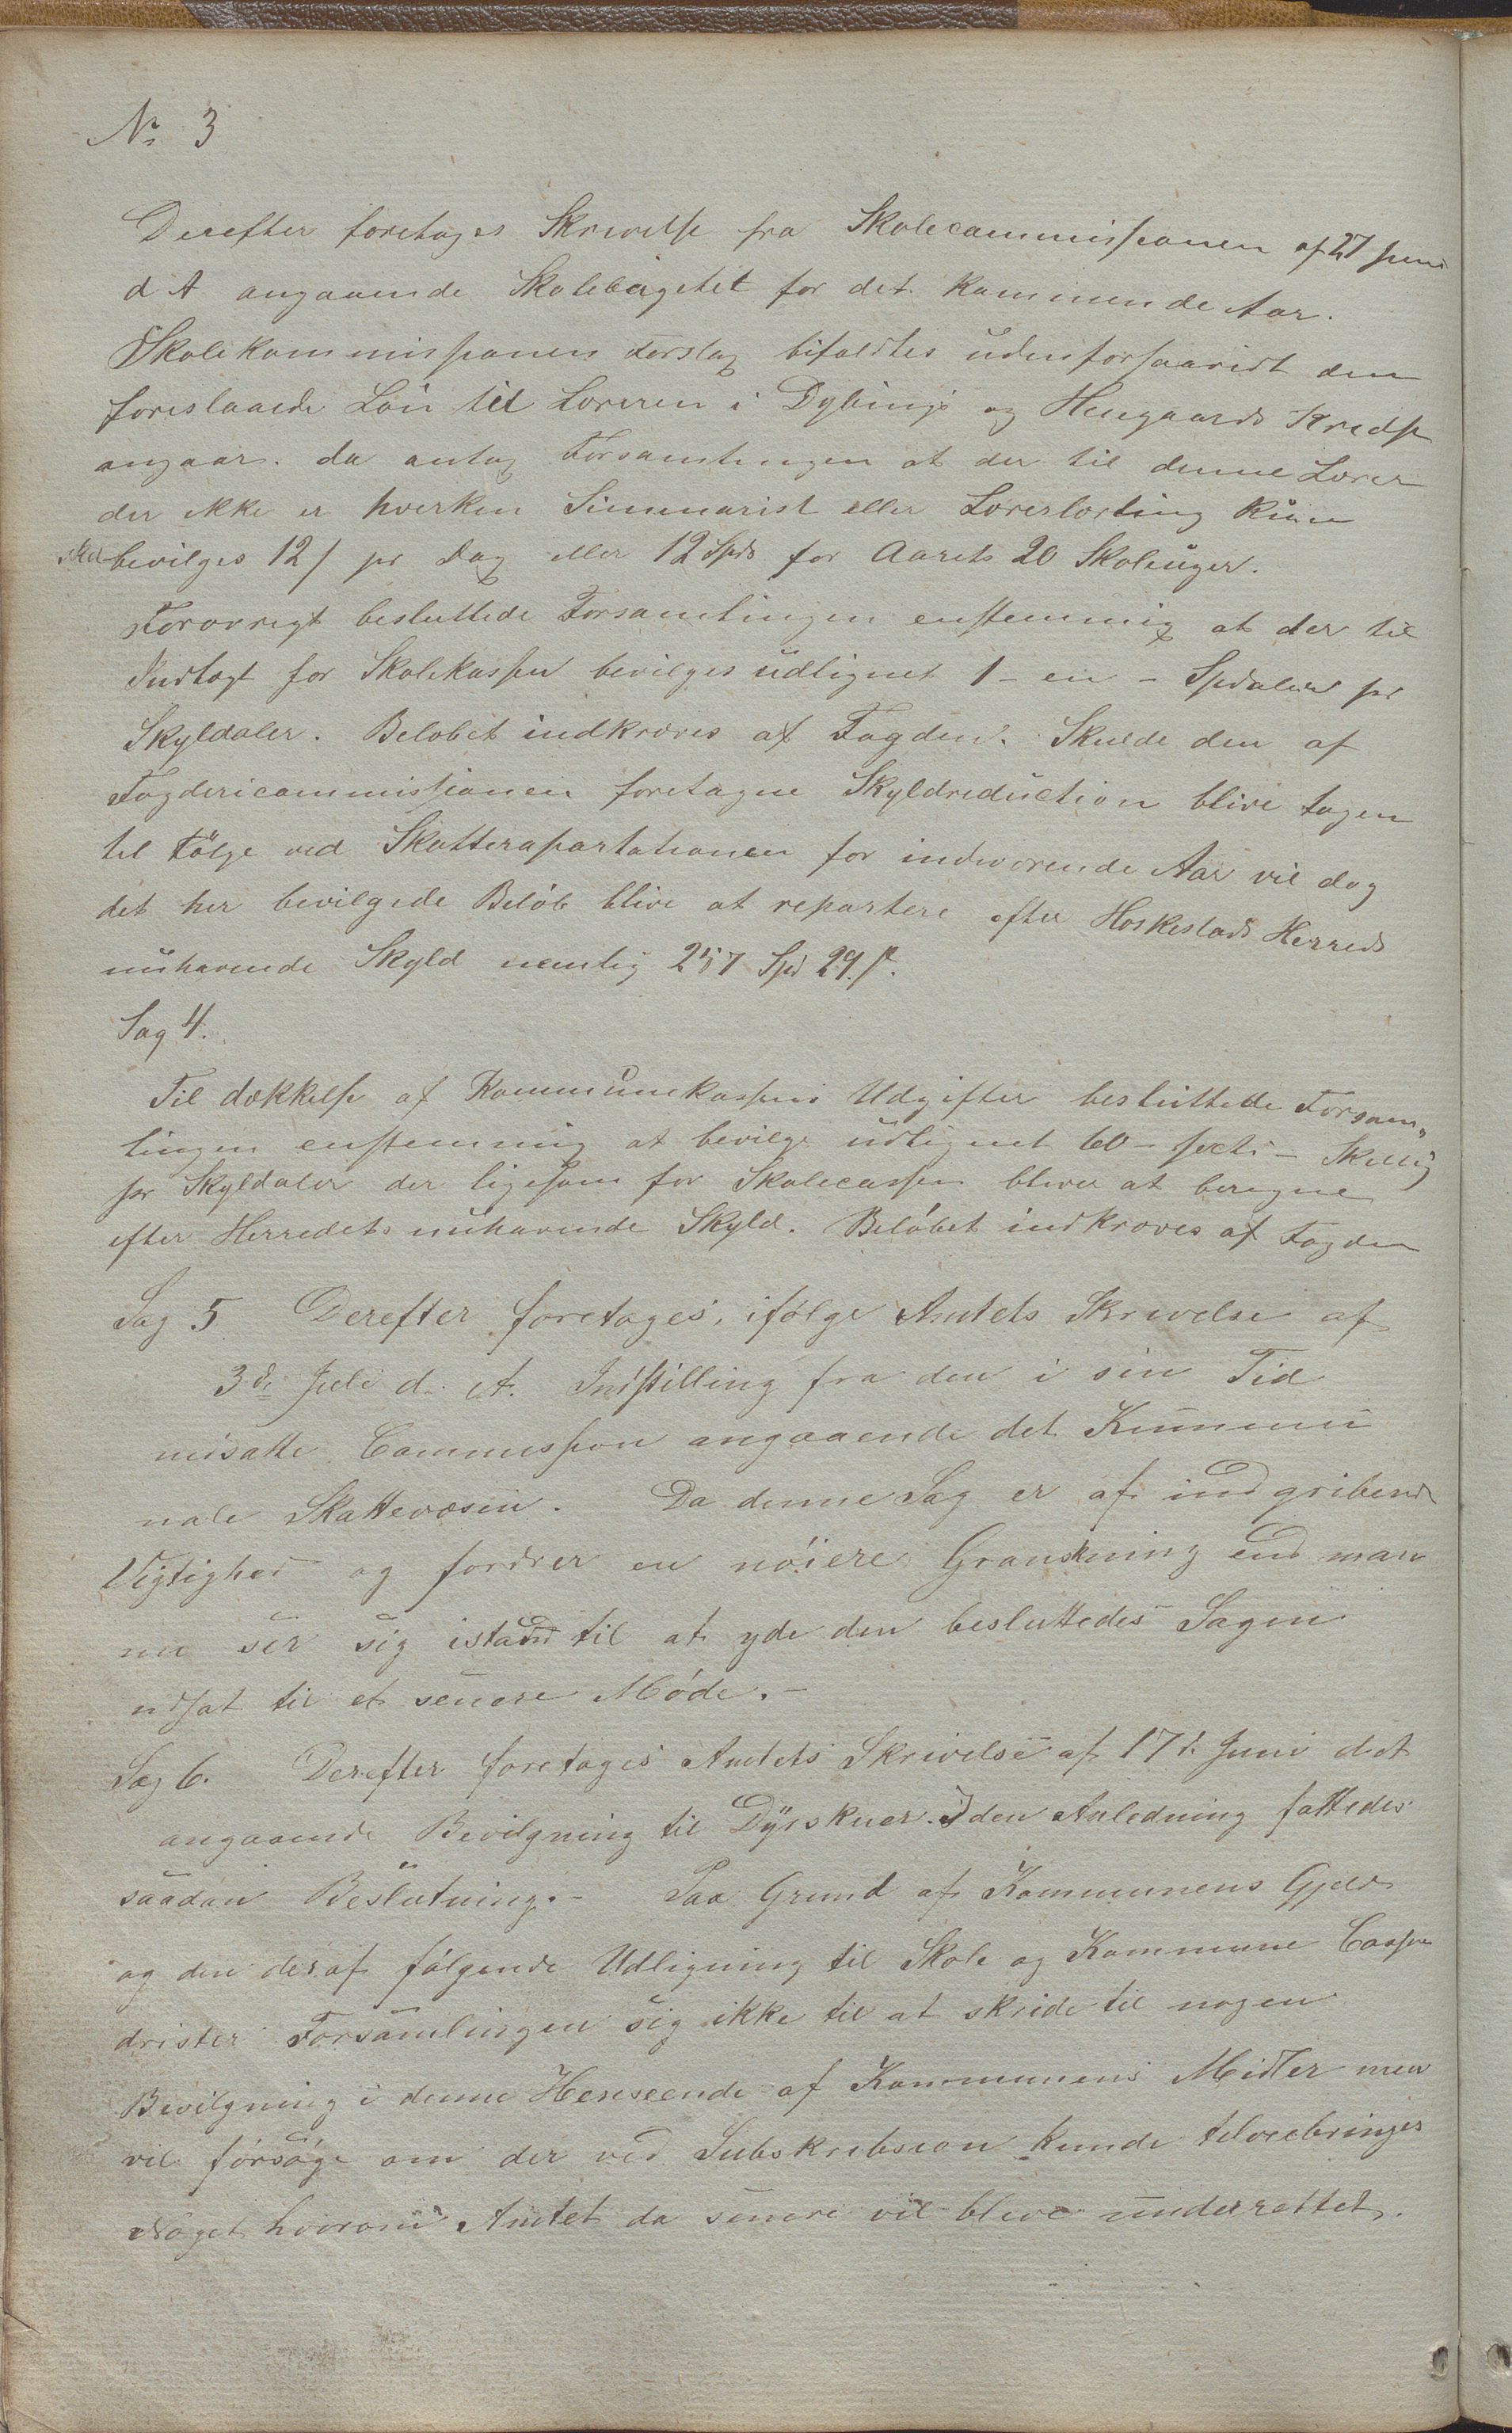 No 3
Derefter foretoges Skrivelse fra Skolecommissionen af 27 Juni
d A angaaende Skolebugetet for det kommende Aar.
Skolekommissionens Forslag bifaldtes udenforsaavidt den
foreslaaede Lön til Læreren i Dybings og Heugaards Kredse
angaar. da antog Forsamlingen at der til denne Lærer
der ikke er hverken Siminarist eller Lærerlærling kun
skal bevilges 12 / pr Dag eller 12 Spds for Aarets 20 Skoleuger.
Forøvrigt besluttede Forsamlingen enstemmig at der til
Indtægt for Skolekassen bevilges udlignet 1 - en - Spdaler pr
Skyldaler. Beløbet indkræves af Fogden. Skulde den af
Fogdericommissionen foretagne Skyldreduction blive tagen
til Følge ved Skatterapartationen for indværende Aar vil dog
det her bevilgede Beløb blive at repartere efter Høskestads Herreds
nuhavende Skyld nemlig 257 Spd 29 /.
Sag 4.
Til dækkelse af Kommunekassens Udgifter besluttede Forsam„
lingen enstemmig at bevilge udlignet 60 - sexti - Skillig
pr Skyldaler der ligesom for Skolecassen bliver at beregne
efter Herredets nuhavende Skyld. Beløbet indkræves af Fogden
Sag 5 Derefter foretoges, ifölge Amtets Skrivelse af
3d. Juli d. A. Indstilling fra den i sin Tid
nedsatte Commission angaaende det Kummu
nale Skattevæsen. Da denne Sag er af indgribende
Vigtighed og fordrer en nöiere Granskning end man
nu ser sig istand til at yde den besluttedes Sagen
udsat til et senere Möde. -
Sag 6. Derefter foretoges Amtets Skrivelse af 17d. Juni d A
angaaende Bevilgning til Dyrskuer. I den Anledning fattedes
saadan Beslutning. - Paa Grund af Kommunens Gjeld
og den deraf fölgende Udligning til Skole og Kommune Cassen
drister Forsamlingen sig ikke til at skride til nogen
Bevilgning i denne Henseende af Kommunens Midler men
vil forsöge om der ved Subskribsion kunde tilveiebringes
Noget hvorom Amtet da senere vil blive underrettet.